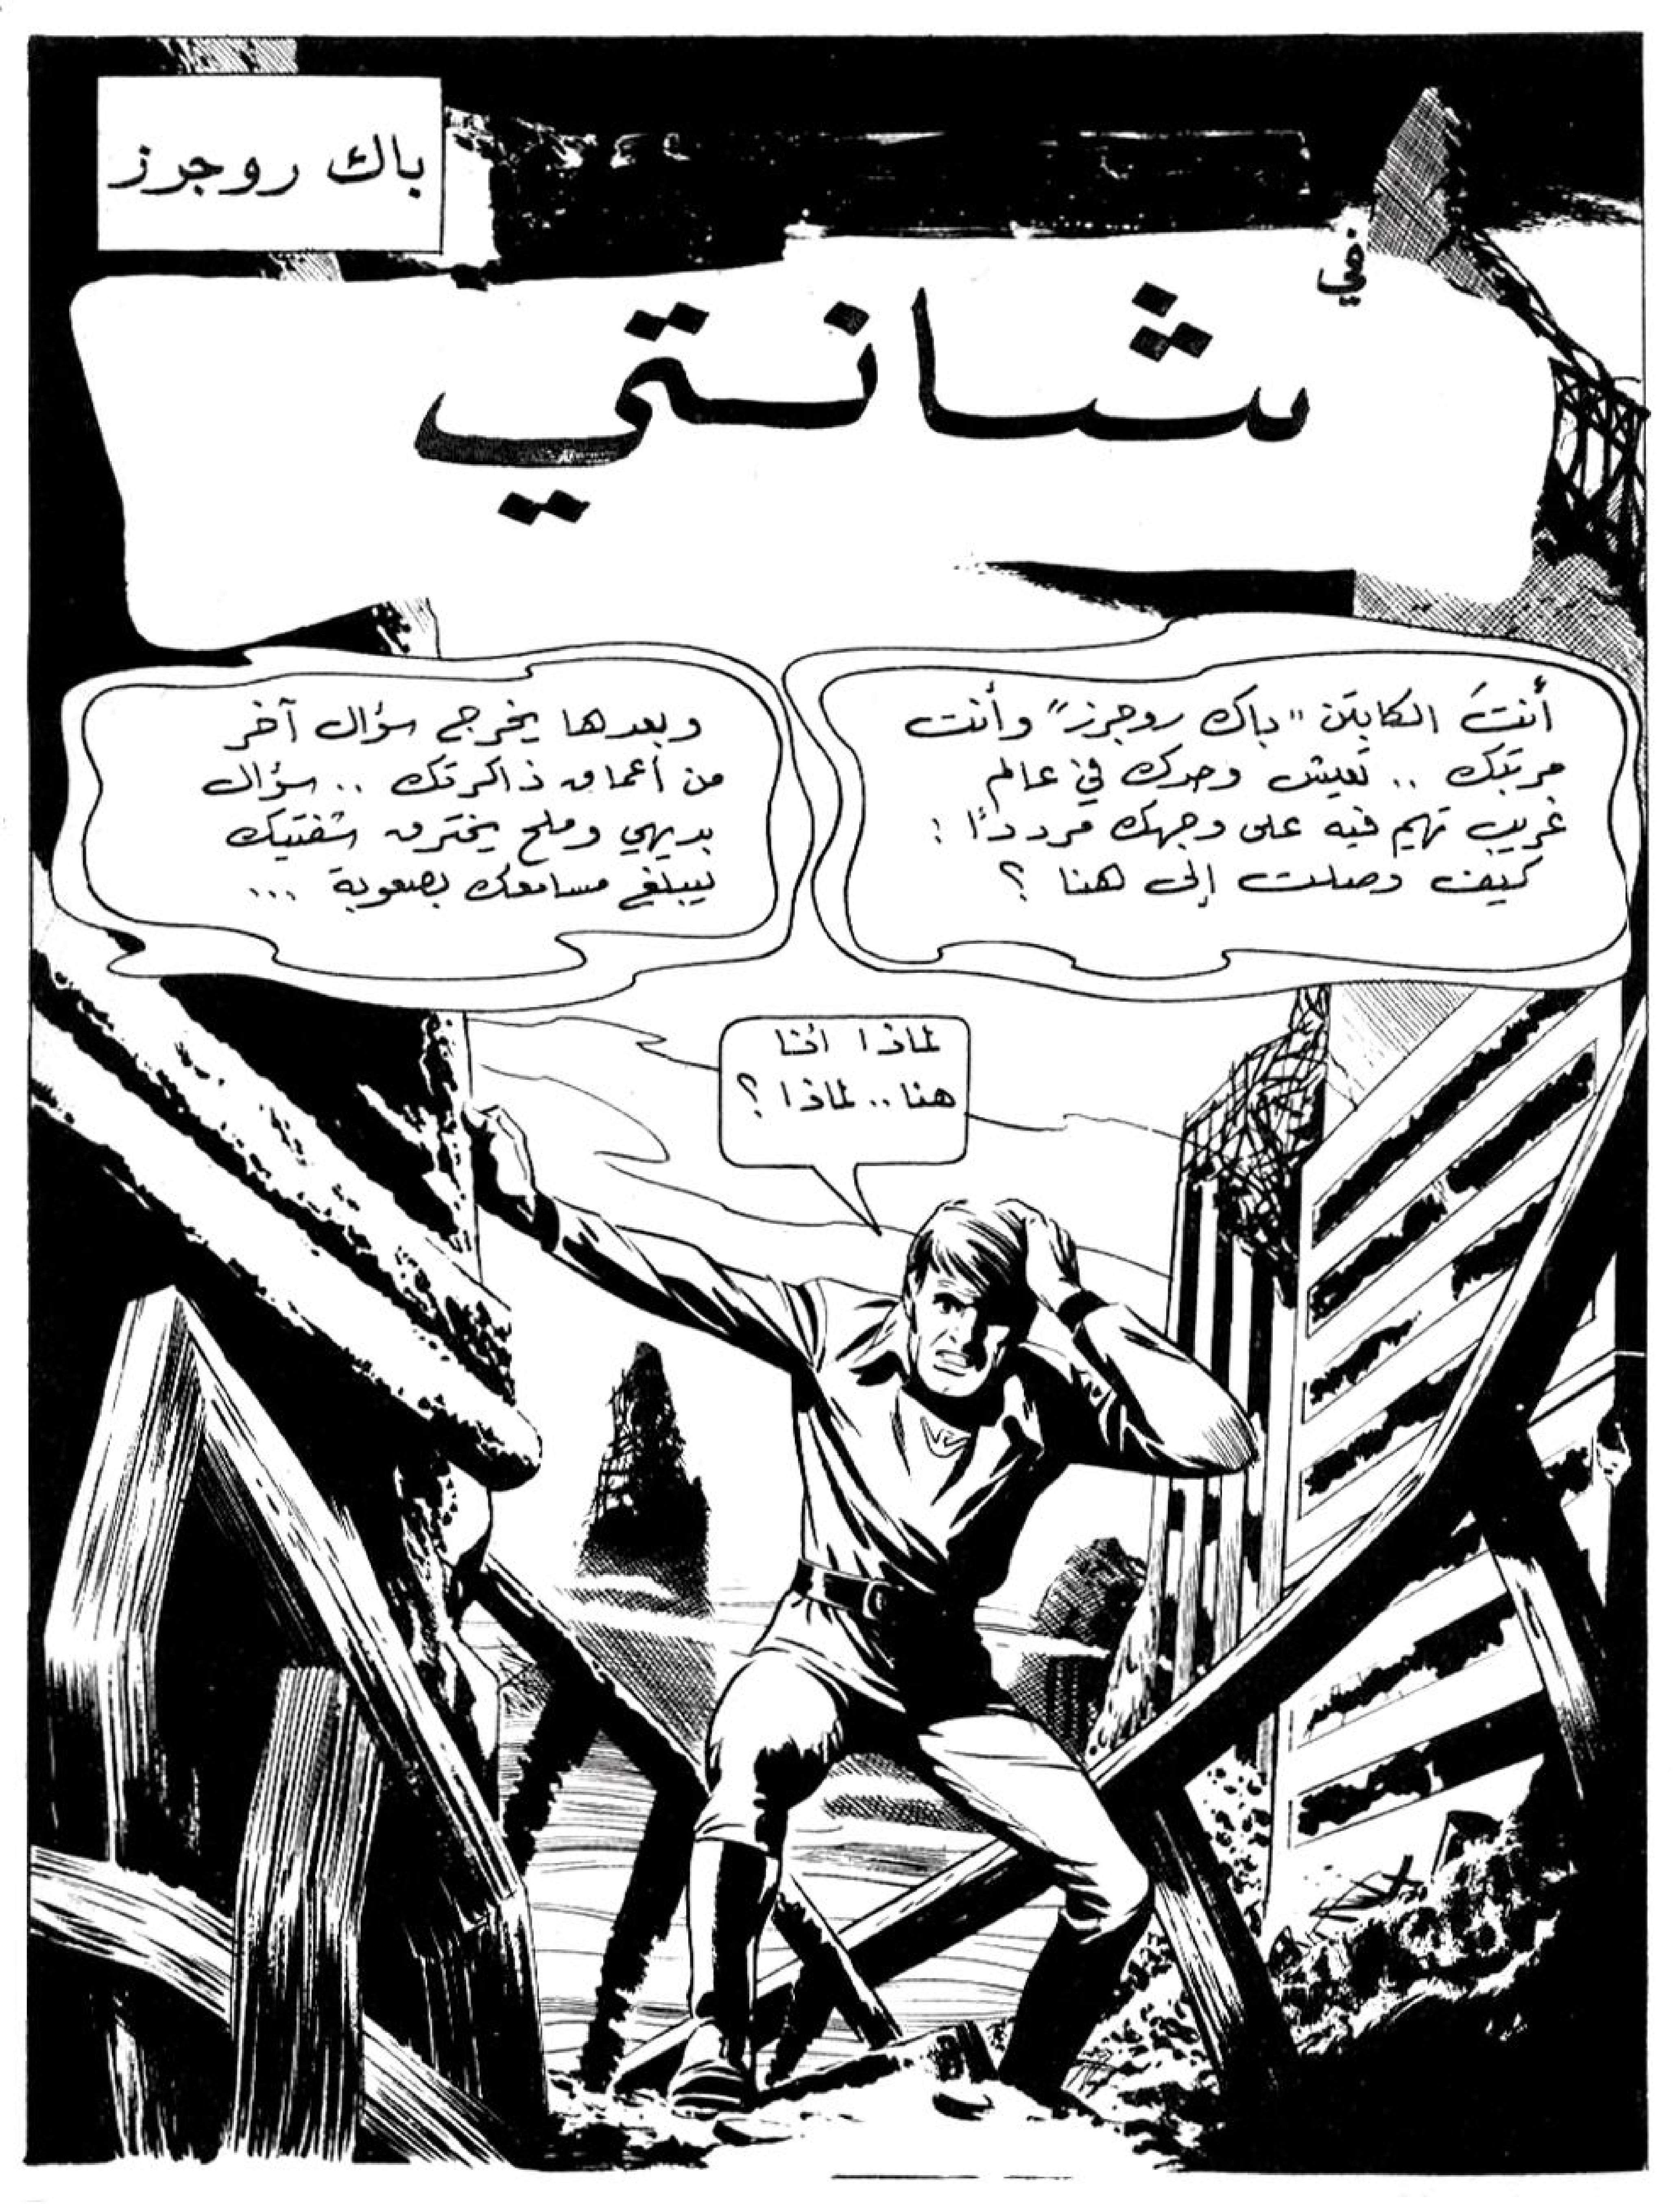 باك روجرز
في
شانتي
أنتَ الكابتن "باك روجرز" وأنت
مرتبك .. تعيش وحدك في عالم
غريب تهيم فيه على وجهك مردداً :
كيف وصلت إلى هنا ؟
وبعدها يخرج سؤال آخر
من أعماق ذاكرتك .. سؤال
بديهي وملح يخترق شفتيك
ليبلغ مسامعك بصعوبة ...
لماذا أنا
هنا .. لماذا ؟